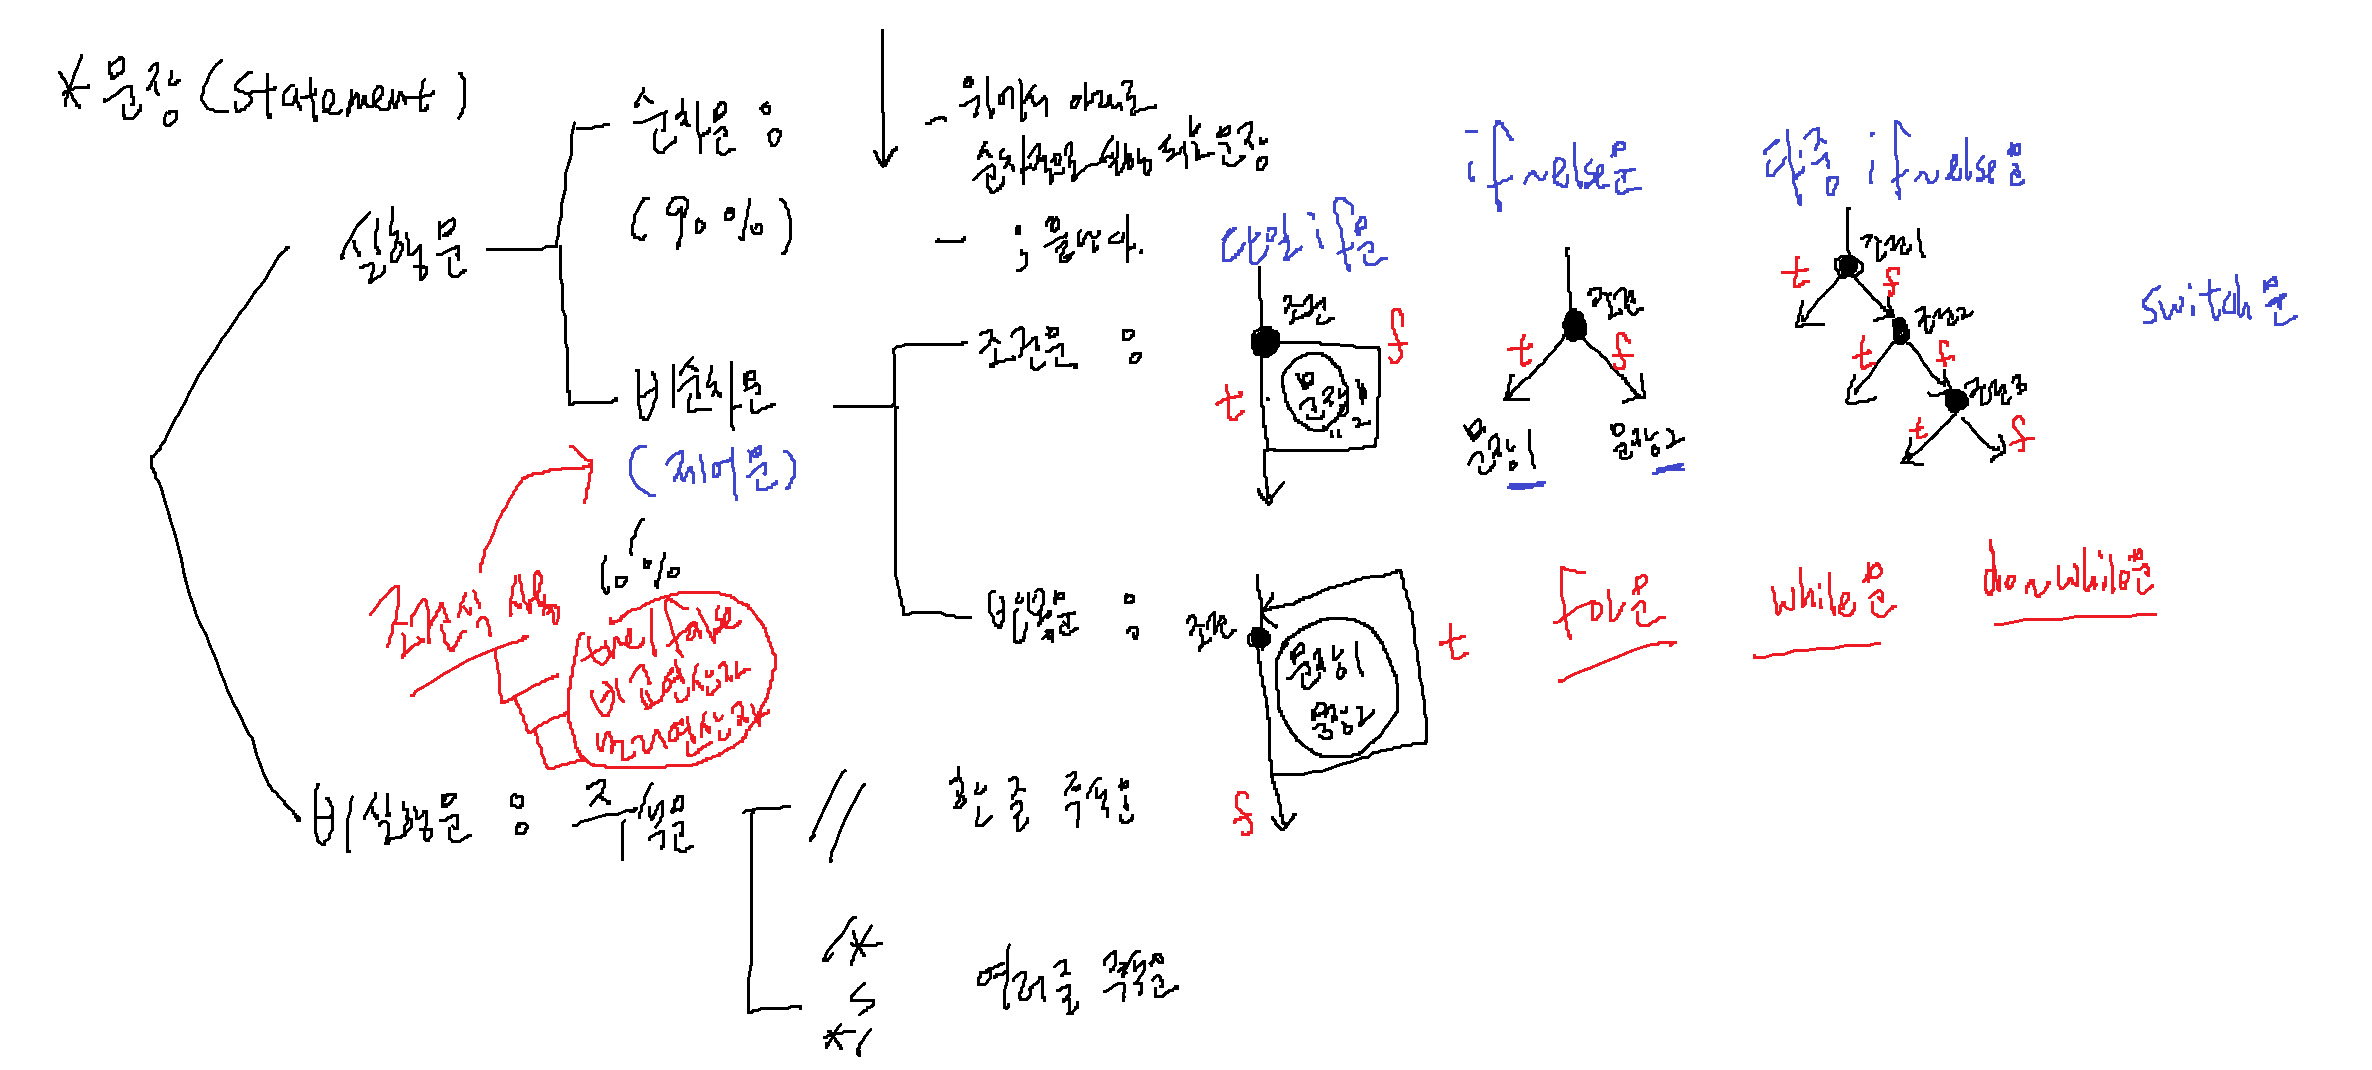 *문장(statement)
실행문
순차문 :
(90%)
- 위에서 아래로
순차적으로 실행되는 문장
- ; 을 넣다.
비순차문
(제어문)
10%
조건식 사용
true/false
비교연산자
논리연산자
조건문 :
단일 if문
조건
t
f
문장1
"2
if~else문
조건
t
f
문장1
문장2
다중 if~else문
조건1
t
f
조건2
t
f
조건3
t
f
switch문
반복문 :
조건
t
문장1
문장2
f
for문
while문
do~while문
비실행문 : 주석문
//
한 줄 주석문
/*
*/
여러줄 주석문